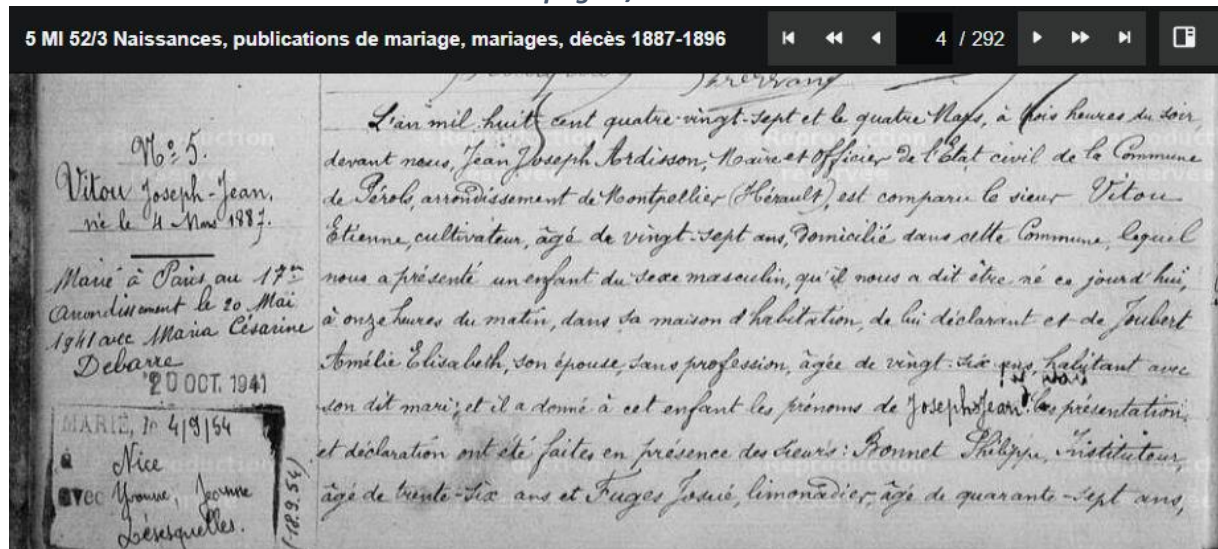 5 MI 52/3 Naissances, publications de mariage, mariages, décès 1887-1896
4 / 292
N.º 5.
Vitou Joseph-Jean.
né le 4 Mars 1887.
Marié à Paris au 17me
arrondissement le 20 Mai
1941 avec Maria Césarine
Debarre
20 OCT. 1941
MARIÉ, le 4/9/54
à Nice
avec Yvonne, Jeanne
Lésesquelles.
(-18.9.54)
L'an mil huit cent quatre-vingt-sept et le quatre Mars, à trois heures du soir
devant nous, Jean Joseph Ardisson, Maire et Officier de l'État civil de la Commune
de Pérols, arrondissement de Montpellier (Hérault), est comparu le sieur Vitou
Etienne, cultivateur, âgé de vingt-sept ans, domicilié dans cette Commune, lequel
nous a présenté un enfant du sexe masculin, qu'il nous a dit être né ce jourd'hui,
à onze heures du matin, dans sa maison d'habitation, de lui déclarant et de Joubert
Amélie Elisabeth, son épouse, sans profession, âgée de vingt-six ans, habitant avec
son dit mari; et il a donné à cet enfant les prénoms de Joseph Jean. Les présentation
et déclaration ont été faites en présence des sieurs: Bonnet Philippe, Instituteur,
âgé de trente-six ans et Fuges Josué, limonadier, âgé de quarante-sept ans,